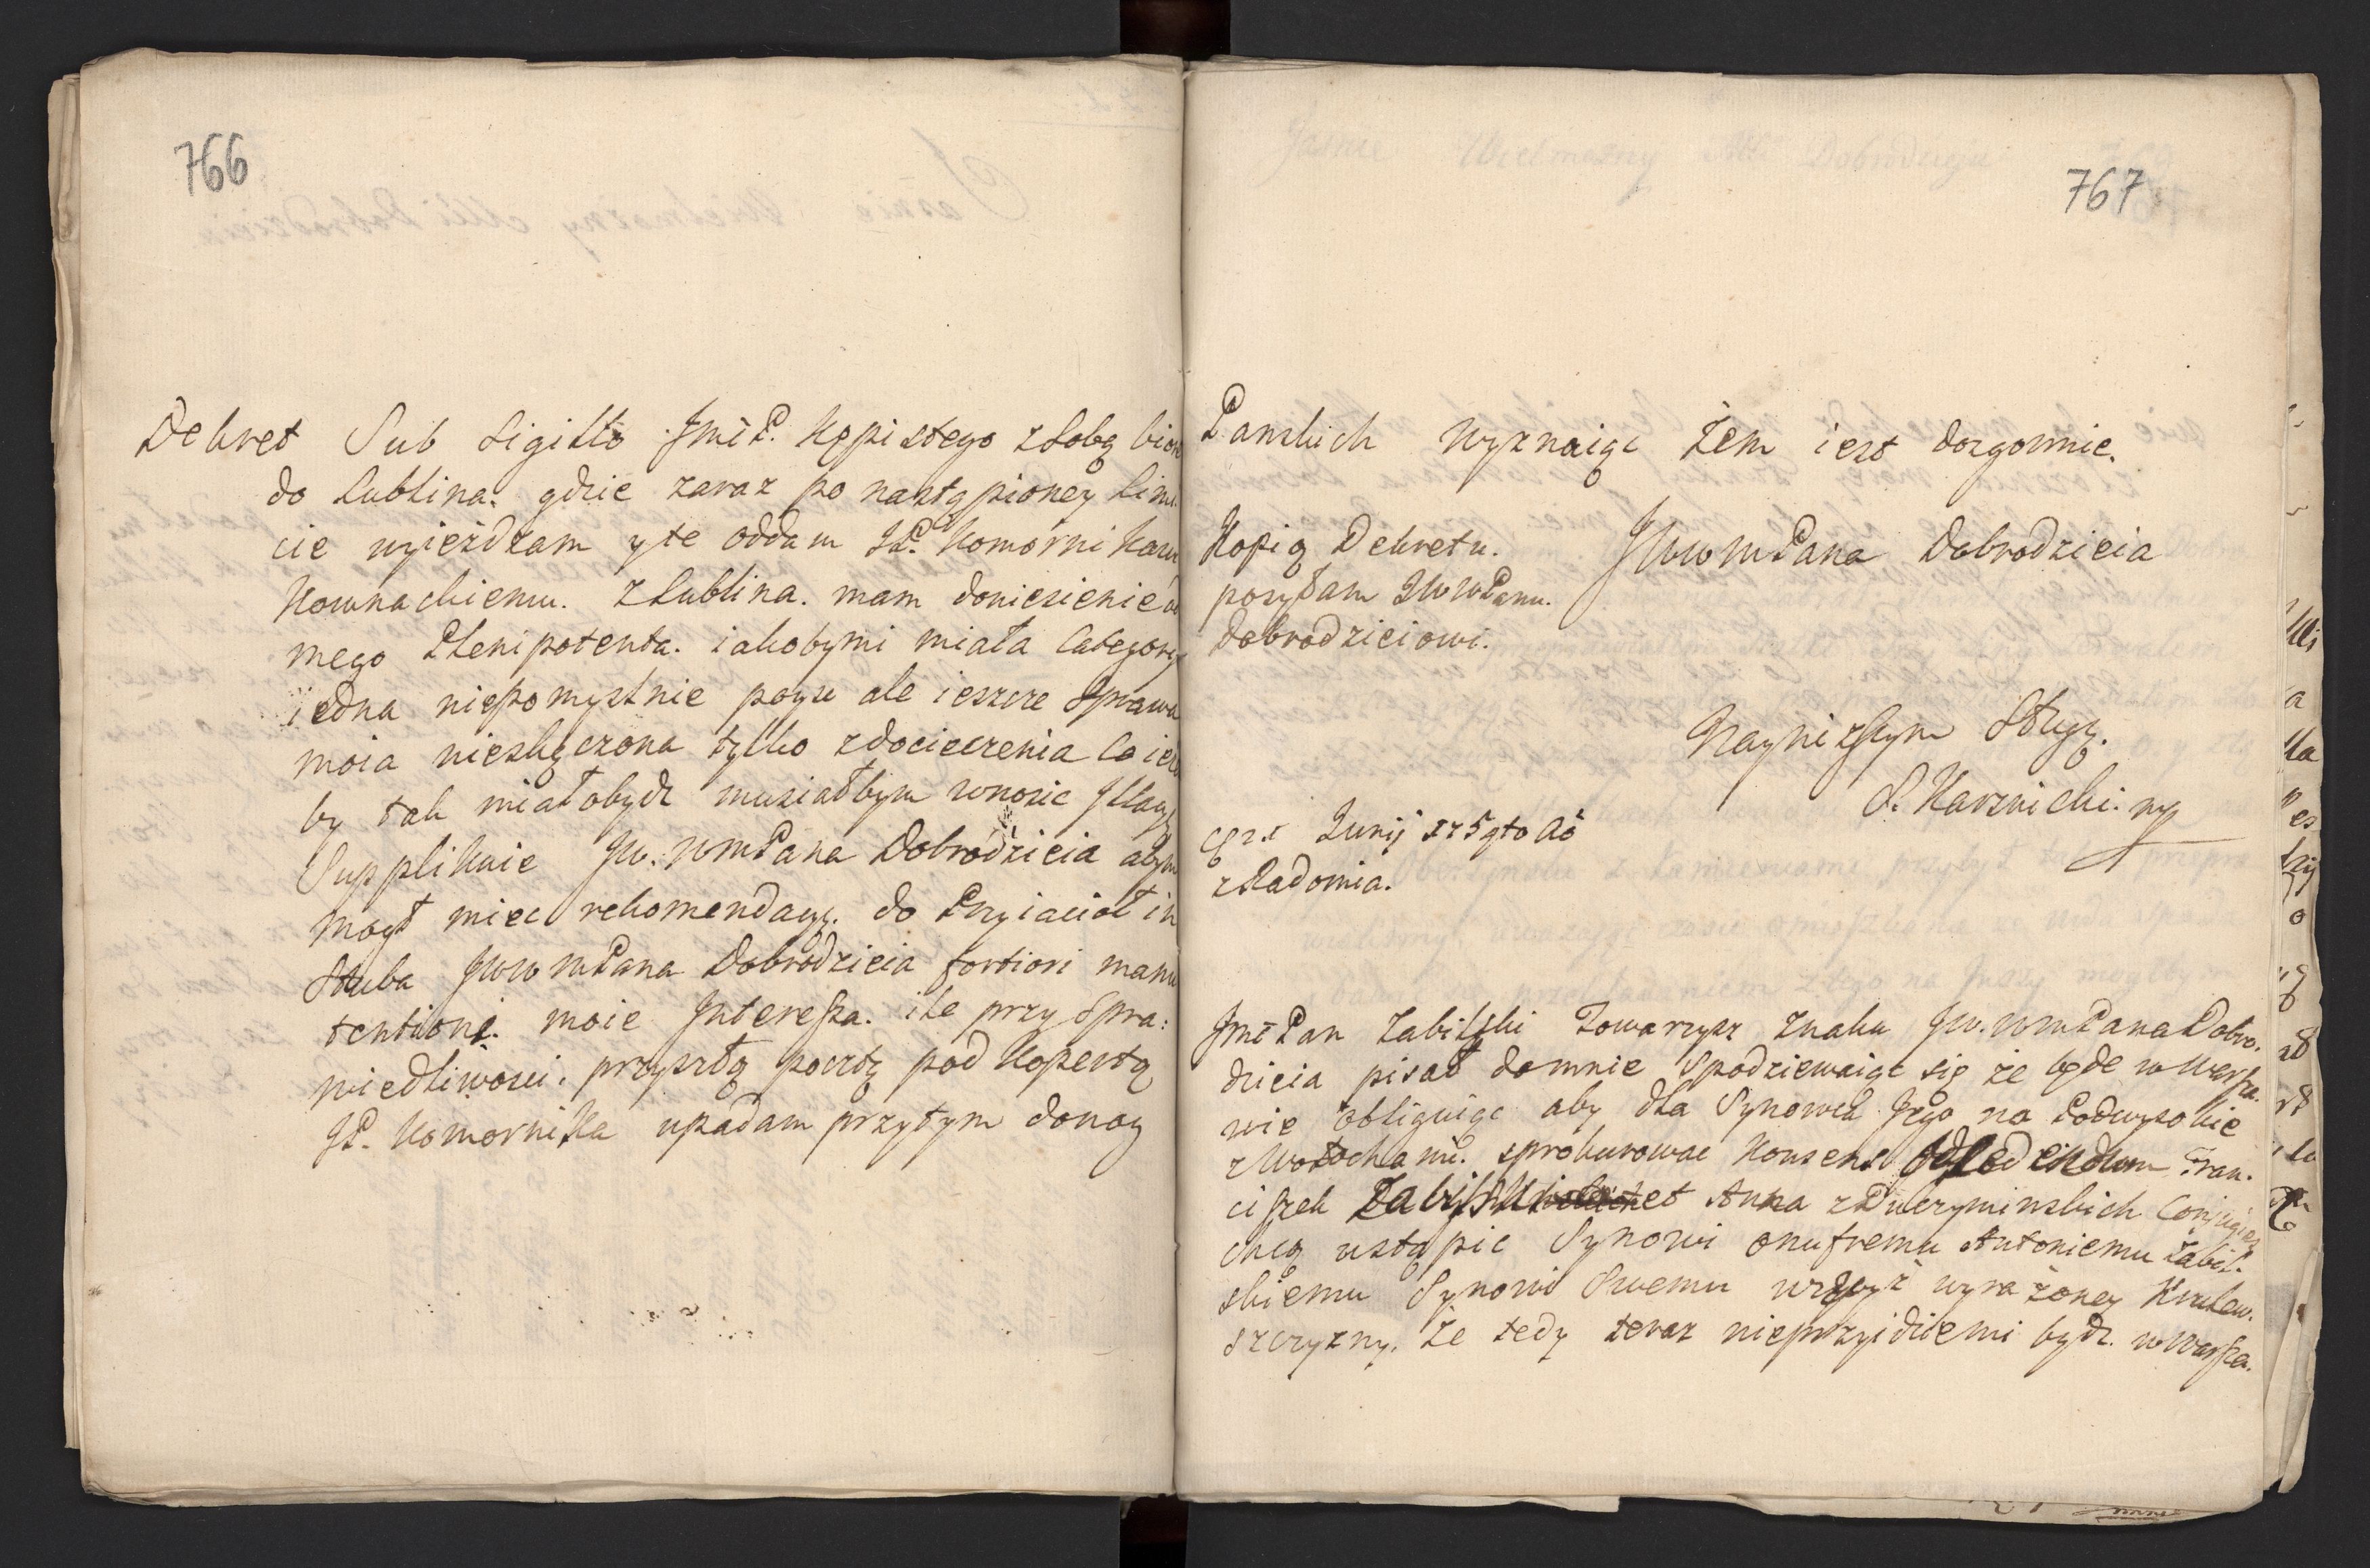 766
Dekret Sub Sigillo Jmē P. Kępistego z Sobą biorę
do Lublina. gdzie zaraz po nastąpioney Limi-
cie wyieżdzam y te oddam JP. Komornikowi
Kownackiemu. z Lublina. mam doniesienie od
mego Plenipotenta. iakobymi miała Categorya
iedna niepomyslnie poysc ale ieszcze Sprawa
moia nieskączona tylko z docieczenia Co iezli
by tak miało bydz musiałbym wnosic
Supplikuie Jw. WmPana Dobrodzieia abym
mogł miec rekomendacyą. do Przyiacioł
JwwmPana Dobrodzieia fortiori manu
tentione. moie Interessa. ile przy Spra:
wiedliwosci. przyszłą pocztą pod Kopertą
JP. Komornika upadam przytym do nog
767
Panskich Wyznaiąc Żem iest dozgonnie.
Kopią Dekretu.
posyłam JWWPanu.
Dobrodzieiowi.
JwwmPana Dobrodzieia
Nayniższym Sługą.
S. Karsnicki. mp
Junij 175gto Ao
z Radomia.
Jmē Pan Zabilski Towarzysz Znaku Jw. WmPana Dobro.
dzieia pisał domnie Spodziewaiąc się że będe w Warsza.
wie obliguiąc aby dla Synowca Jego na Podwysokie
z Wołochami. sprokurowac Konsens ad Cedendum Fran.
ciszek Zabilski et Anna z Conjuges
chcą ustąpic Synowi onufremu Antoniemu Zabil.
skiemu Synowi Swemu wzwyż wyrażoney Krulew.
szczyzny. że tedy teraz nieprzyidziemi bydz. w Warsza.